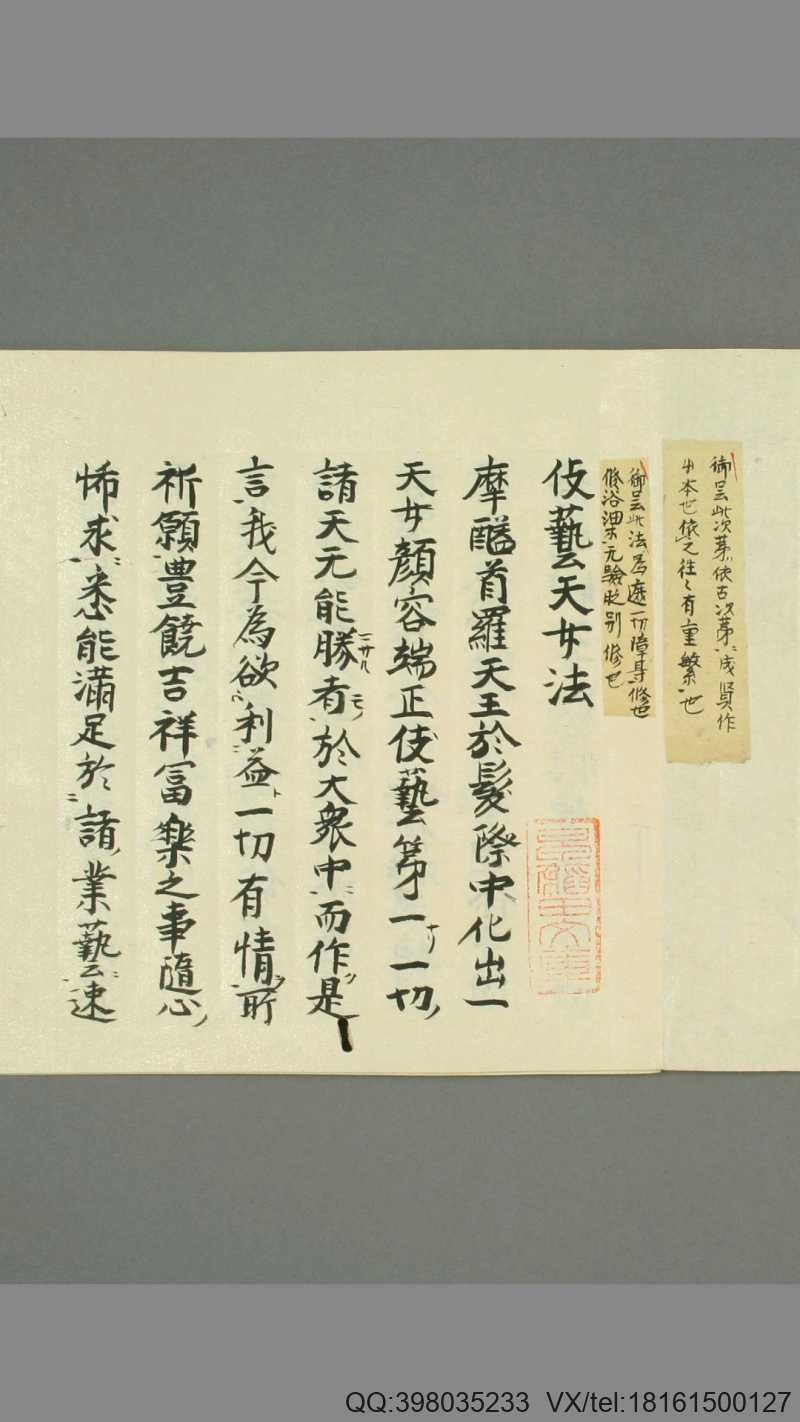 御云此次第依古次第ニ成賢作
出本也依之往々有重繁也
御云此法為遮一切障身修也
修浴油未无驗時別修也
伎藝天女法
摩醯首羅天王於髮際中化出一
天女顏容端正伎藝第一ナリ一切ノ
諸天无能勝サル者モノ於大衆中ニ而作是
言我今為欲利益ト一切有情所
祈願豊饒吉祥富樂之事隨心ノ
悕求ニ悉能滿足於ニ諸ノ業藝ニ速
QQ:398035233 VX/tel:18161500127